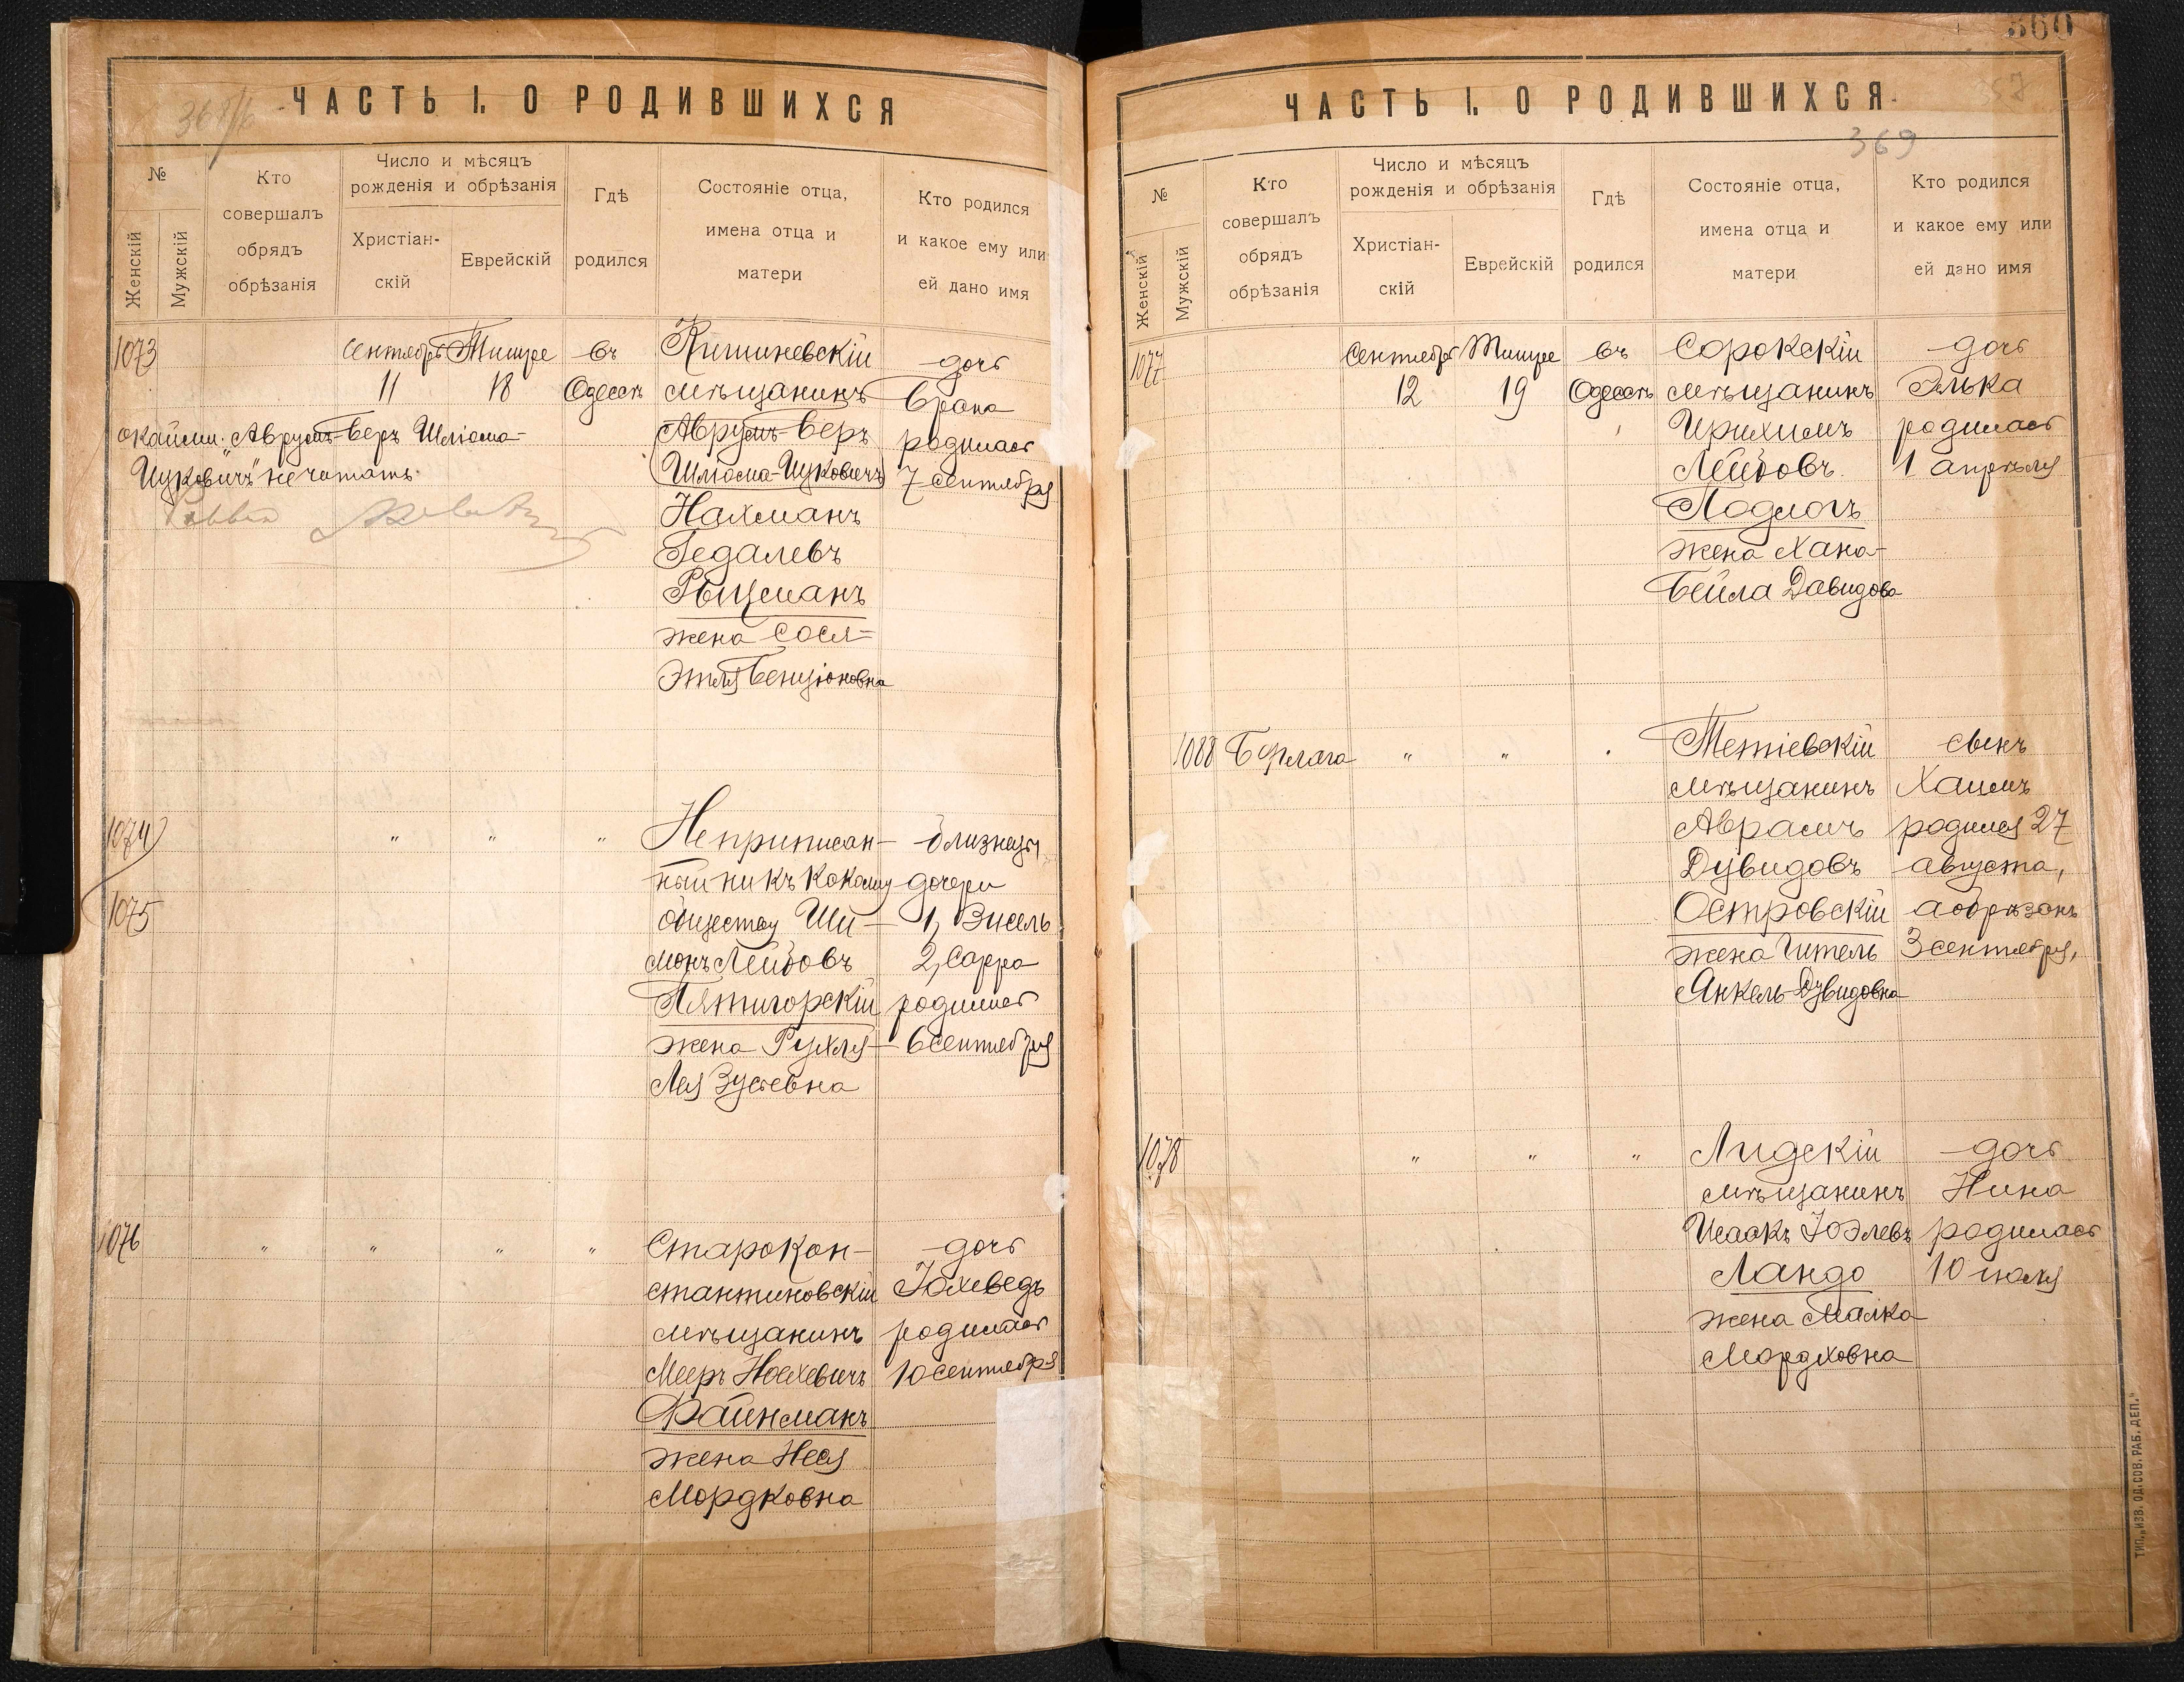 ЧАСТЬ I. О РОДИВШИХСЯ
№
Женскій
Мужскій
Кто
совершалъ
обрядъ
обрѣзанія
Число и мѣсяцъ
рожденія и обрѣзанія
Христіан-
скій
Еврейскій
Гдѣ
родился
Состояніе отца,
имена отца и
матери
Кто родился
и какое ему или
ей дано имя
1073
Сентябрь
11
Тишре
18
въ
Одессѣ
Кишиневскій
мѣщанинъ
Аврумъ-Беръ
Шліома-Ицковичъ
Нахманъ
Гедалевъ
жена Сося-
Этля Бенціоновна
дочь
родилась
7 сентября
окаймл. „Аврумъ-Беръ Шліома-
Ицковичъ" не читать.
1074
1075
"
"
"
Неприписан-
ный ни къ какому
обществу Ши-
монъ Лейбовъ
Пятигорскій
жена Рухля-
Лея Зусевна
близнецы
дочери
1, Эисель
2, Сарра
родились
6 сентября
1076
"
"
"
"
Старокон-
стантиновскій
мѣщанинъ
Мееръ Ноехевичъ
Файнманъ
жена Неся
Мордковна
дочь
Юхеведъ
родилась
10 сентября
360
369
ЧАСТЬ I. О РОДИВШИХСЯ.
№
Женскій
Мужскій
Кто
совершалъ
обрядъ
обрѣзанія
Число и мѣсяцъ
рожденія и обрѣзанія
Христіан-
скій
Еврейскій
Гдѣ
родился
Состояніе отца,
имена отца и
матери
Кто родился
и какое ему или
ей дано имя
1077
Сентябрь
12
Тишре
19
въ
Одессѣ
Сорокскій
мѣщанинъ
Ирихимъ
Лейбовъ
жена Хана-
Бейла Давидова
дочь
Элька
родилась
1 апрѣля
1088
"
"
Тетіевскій
мѣщанинъ
Аврамъ
Дувидовъ
Островскій
жена Гитель
Янкель-Дувидовна
сынъ
Хаимъ
родился 27
августа,
а обрѣзанъ
3 сентября,
1078
"
"
"
Лидскій
мѣщанинъ
Исаакъ Юэлевъ
Ландо
жена Малка
Мордховна
дочь
Нина
родилась
10 іюля
ТИП. „ИЗВ. ОД. СОВ. РАБ. ДЕП."